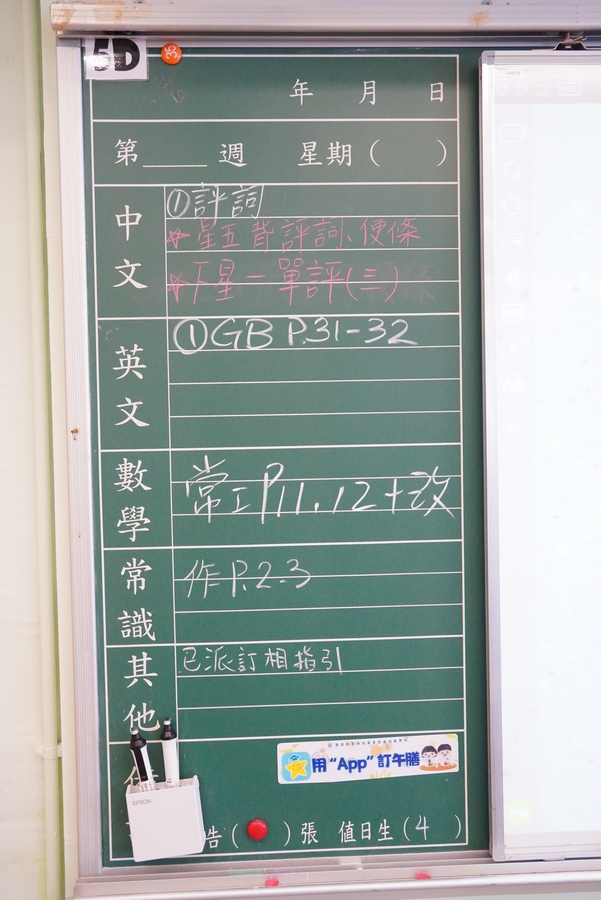 5D
35
年 月 日
第____週 星期( )
中文
①評詞
*星五背評詞、便條
*下星一單評(三)
英文
①GB P.31-32
數學
常工P.11.12+改
常識
作P.2.3
其他
已派訂相指引
用“App”訂午膳
EPSON
告( )張 值日生(4 )